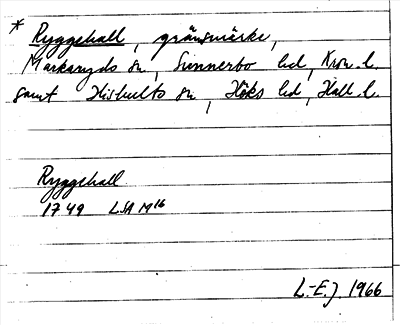 * Ryggehall, gränsmärke,
Markaryds sn, Sunnerbo hd, Kron. l.
samt Hishults sn, Höks hd, Hall. l.
Ryggehall
1749 LSA M16
L.-E.J. 1966